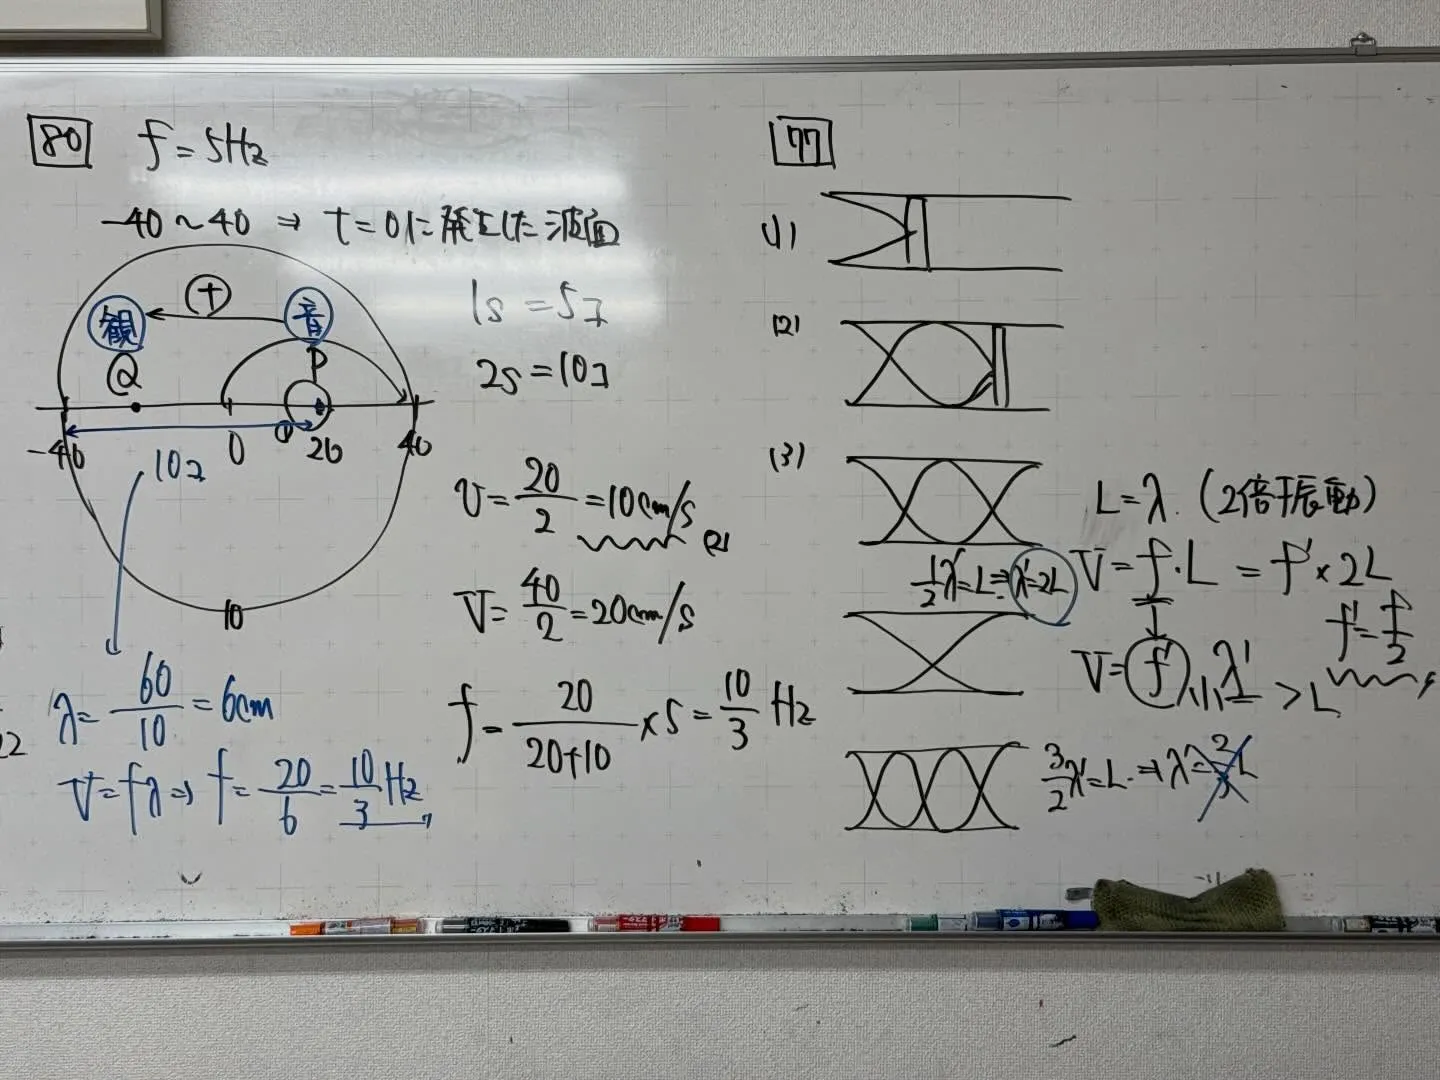 80 f=5Hz
-40~40 ⇒ t=0に発生した波面
1s=5コ
2s=10コ
観 ← + 音
Q P
-40 0 20 40
10コ
10
v=20/2=10cm/s (2)
V=40/2=20cm/s
f=20/(20+10)×5=10/3 Hz
λ=60/10=6cm
V=fλ⇒f=20/6=10/3Hz
77
(1)
(2)
(3)
L=λ. (2倍振動)
1/2λ'=L⇒λ'=2L
V=f・L=f'×2L
f'=f/2
V=f'λ' >L
3/2λ'=L⇒λ'=2/3L